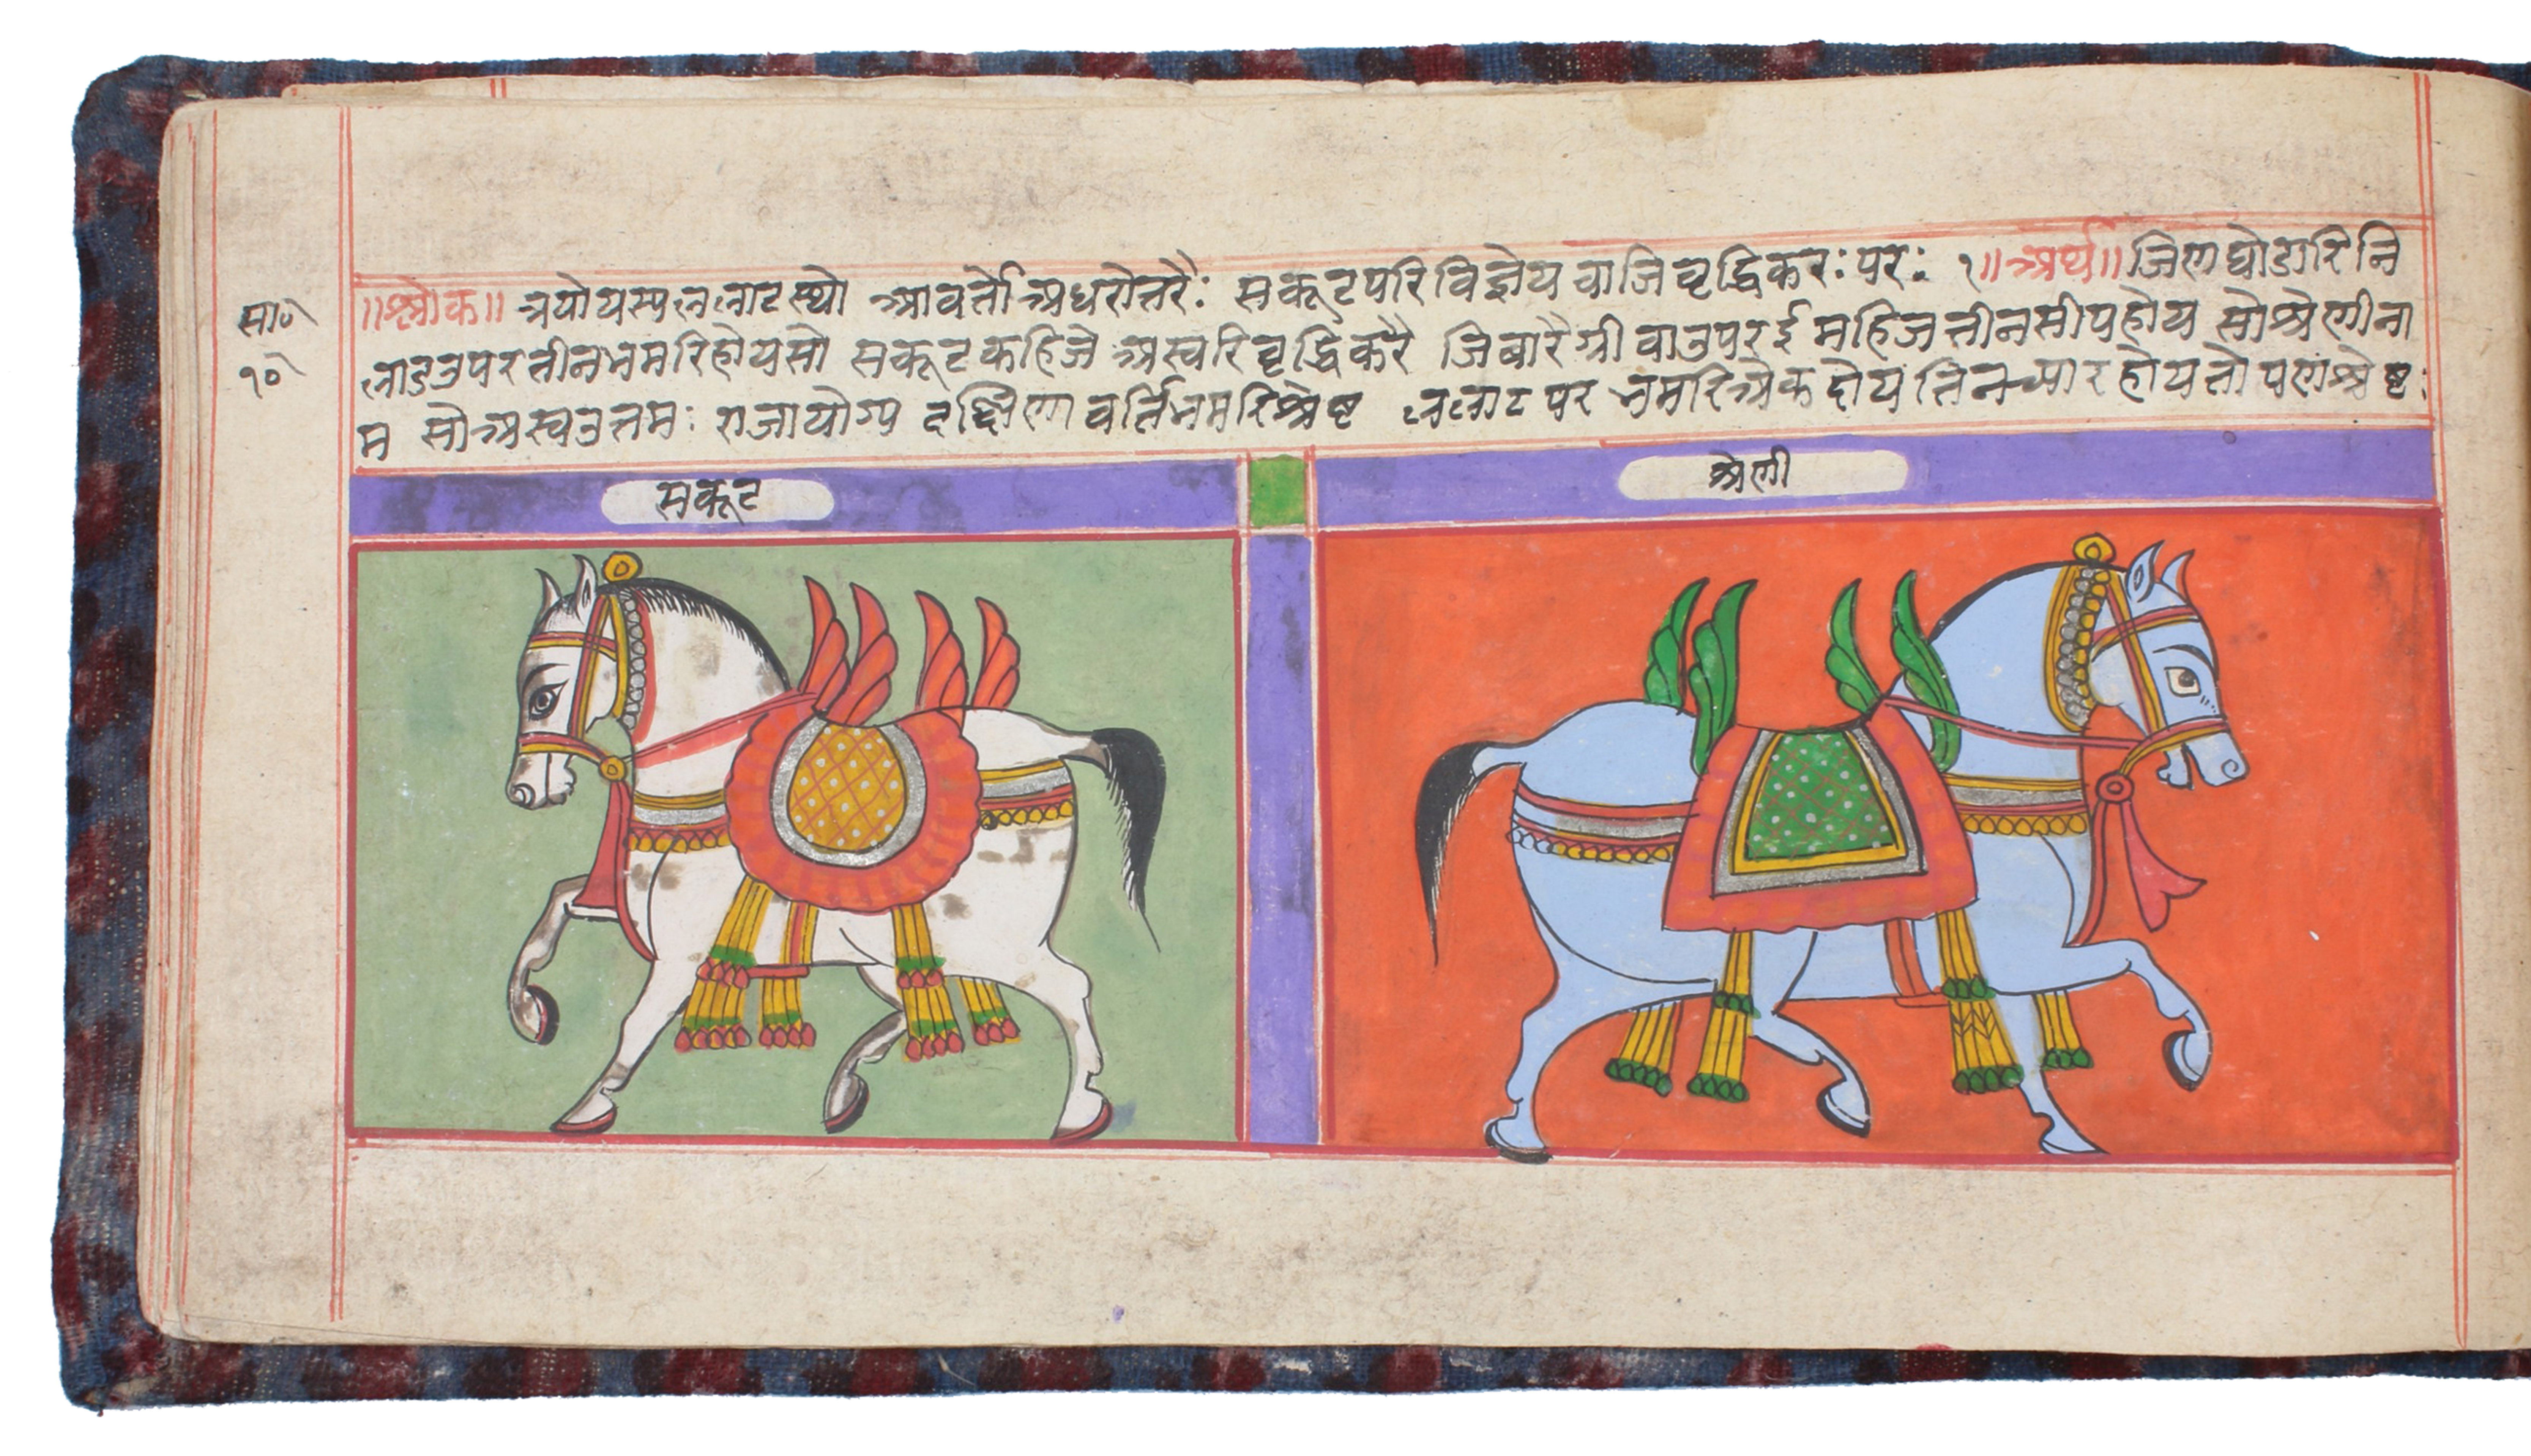 ॥श्लोक॥ त्रयोयस्पललाटस्थो आवर्तोअधरोत्तरैः सकूटपरिविज्ञेय वाजिवृद्धिकरःपरः १॥अर्थ॥जिणघोडारिनि
लाडउपरतीनभमरिहोयसो सकूटकहिजे अस्वरिवृद्धिकरै जिबारैग्रीवाउपरईमहिजतीनसीपहोय सोश्रेणीना
म सोअस्वउत्तमः राजायोग्य दक्षिणावर्तिभमरिश्रेष्ट ललाटपर भमरिऐकदोयतिनच्यारहोयतोपणश्रेष्टः
सा०
१०
सकूट
श्रेणी